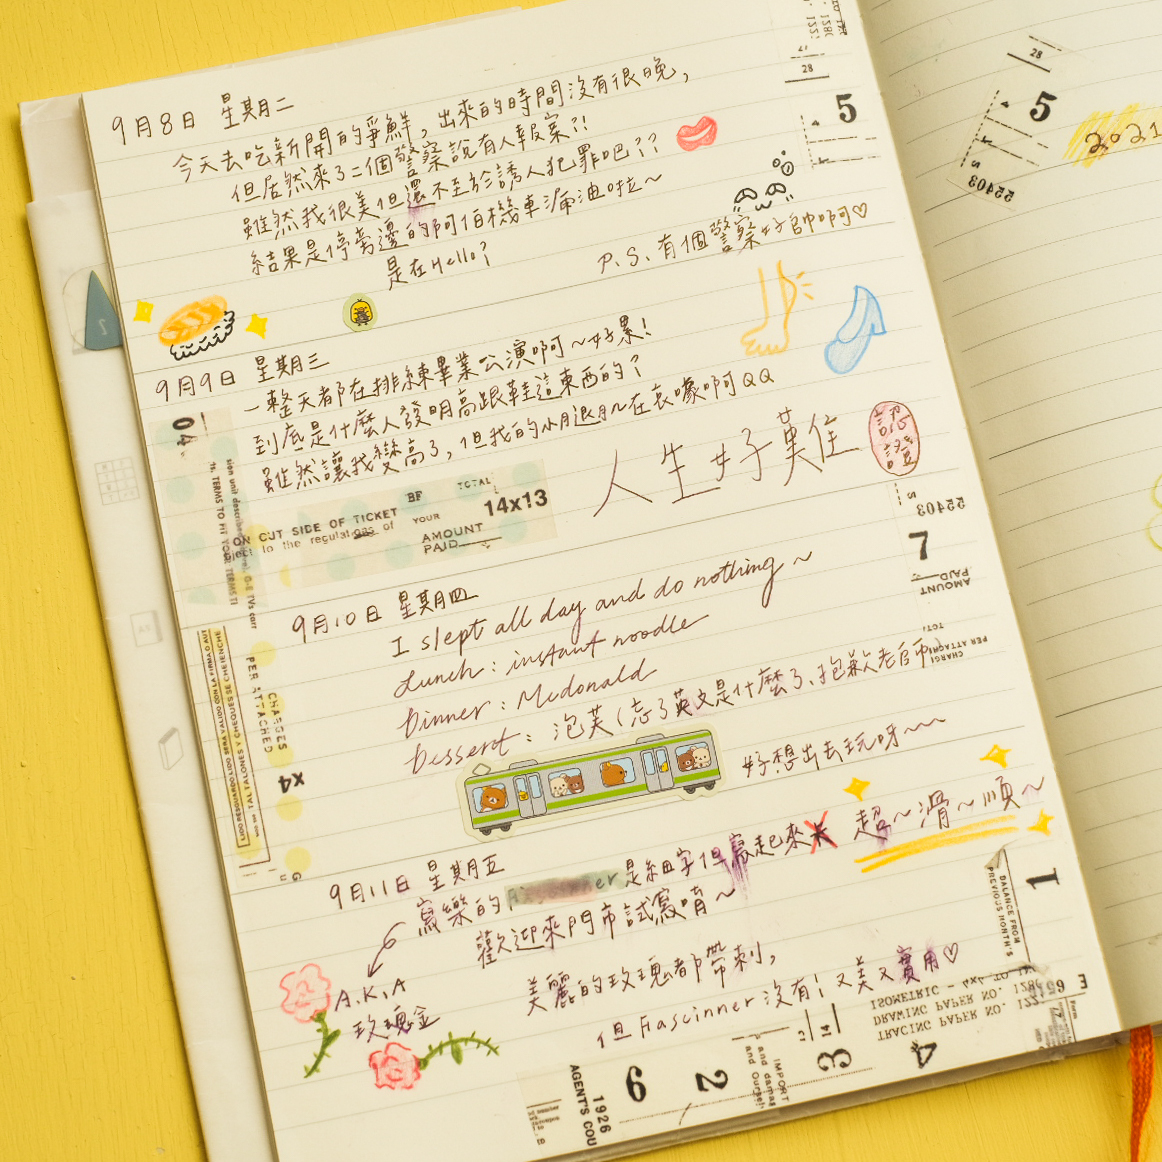 9月8日 星期二
今天去吃新開的爭鮮，出來的時間沒有很晚，
但居然來了二個警察說有人報案?!
雖然我很美但還不至於誘人犯罪吧??
結果是停旁邊的阿伯機車漏油啦~
是在Hello?
P.S.有個警察好帥啊♡
9月9日 星期三
一整天都在排練畢業公演啊~好累!
到底是什麼人發明高跟鞋這東西的?
雖然讓我變高了，但我的小腿肌在哀嚎啊QQ
人生好難
認證
ON CUT SIDE OF TICKET
BF
YOUR
TOTAL
14x13
AMOUNT
PAID
9月10日 星期四
I slept all day and do nothing ~
Lunch: instant noodle
Dinner: Mcdonald
Dessert: 泡芙(忘了英文是什麼了、抱歉老師)
好想出去玩呀~~
9月11日 星期五
寫樂的 是細字但寫起來 超~滑~順~
歡迎來門市試寫唷~
A.K.A
玫瑰金
美麗的玫瑰都帶刺，
但Fascinner沒有! 又美又實用♡
5
28
5
28
55403
2021
04
55403
7
AMOUNT
PAID
CHARGES
PER ATTACHED
x4
1
BALANCE FROM
PREVIOUS MONTH'S
ISOMETRIC
DRAWING PAPER NO.
TRACING PAPER NO.
6
2
3
4
1926
AGENT'S COU
IMPORT